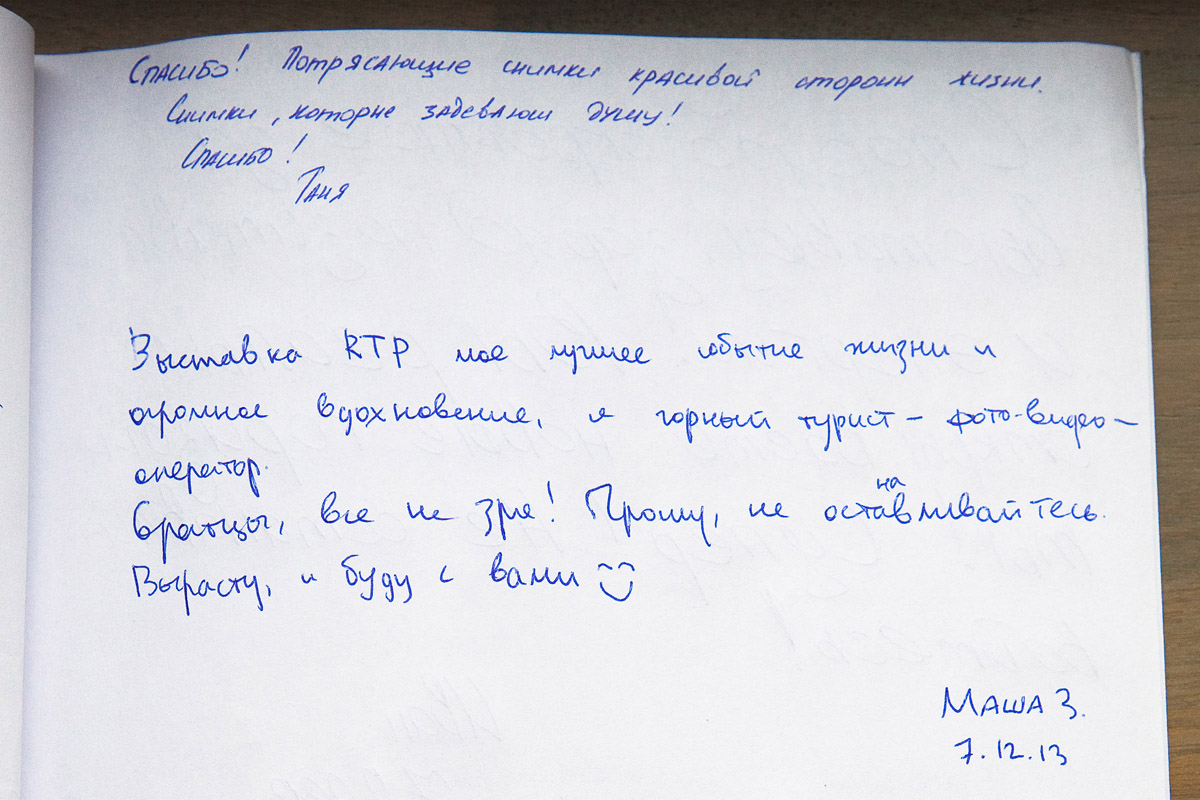 Спасибо! Потрясающие снимки красивой стороны жизни.
Снимки, которые задевают душу!
Спасибо!
Таня
Выставка RTP мое лучшее событие жизни и
огромное вдохновение, я горный турист – фото-видео-
оператор.
Братцы, все не зря! Прошу, не останавливайтесь.
Вырасту, и буду с вами
Маша З.
7.12.13